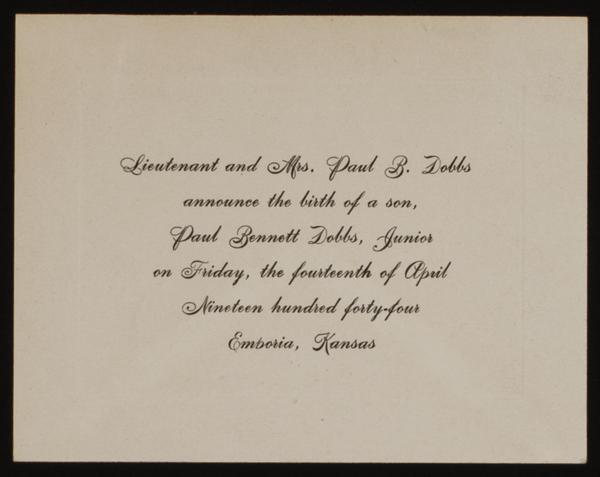 Lieutenant and Mrs. Paul B. Dobbs
announce the birth of a son,
Paul Bennett Dobbs, Junior
on Friday, the fourteenth of April
Nineteen hundred forty-four
Emporia, Kansas